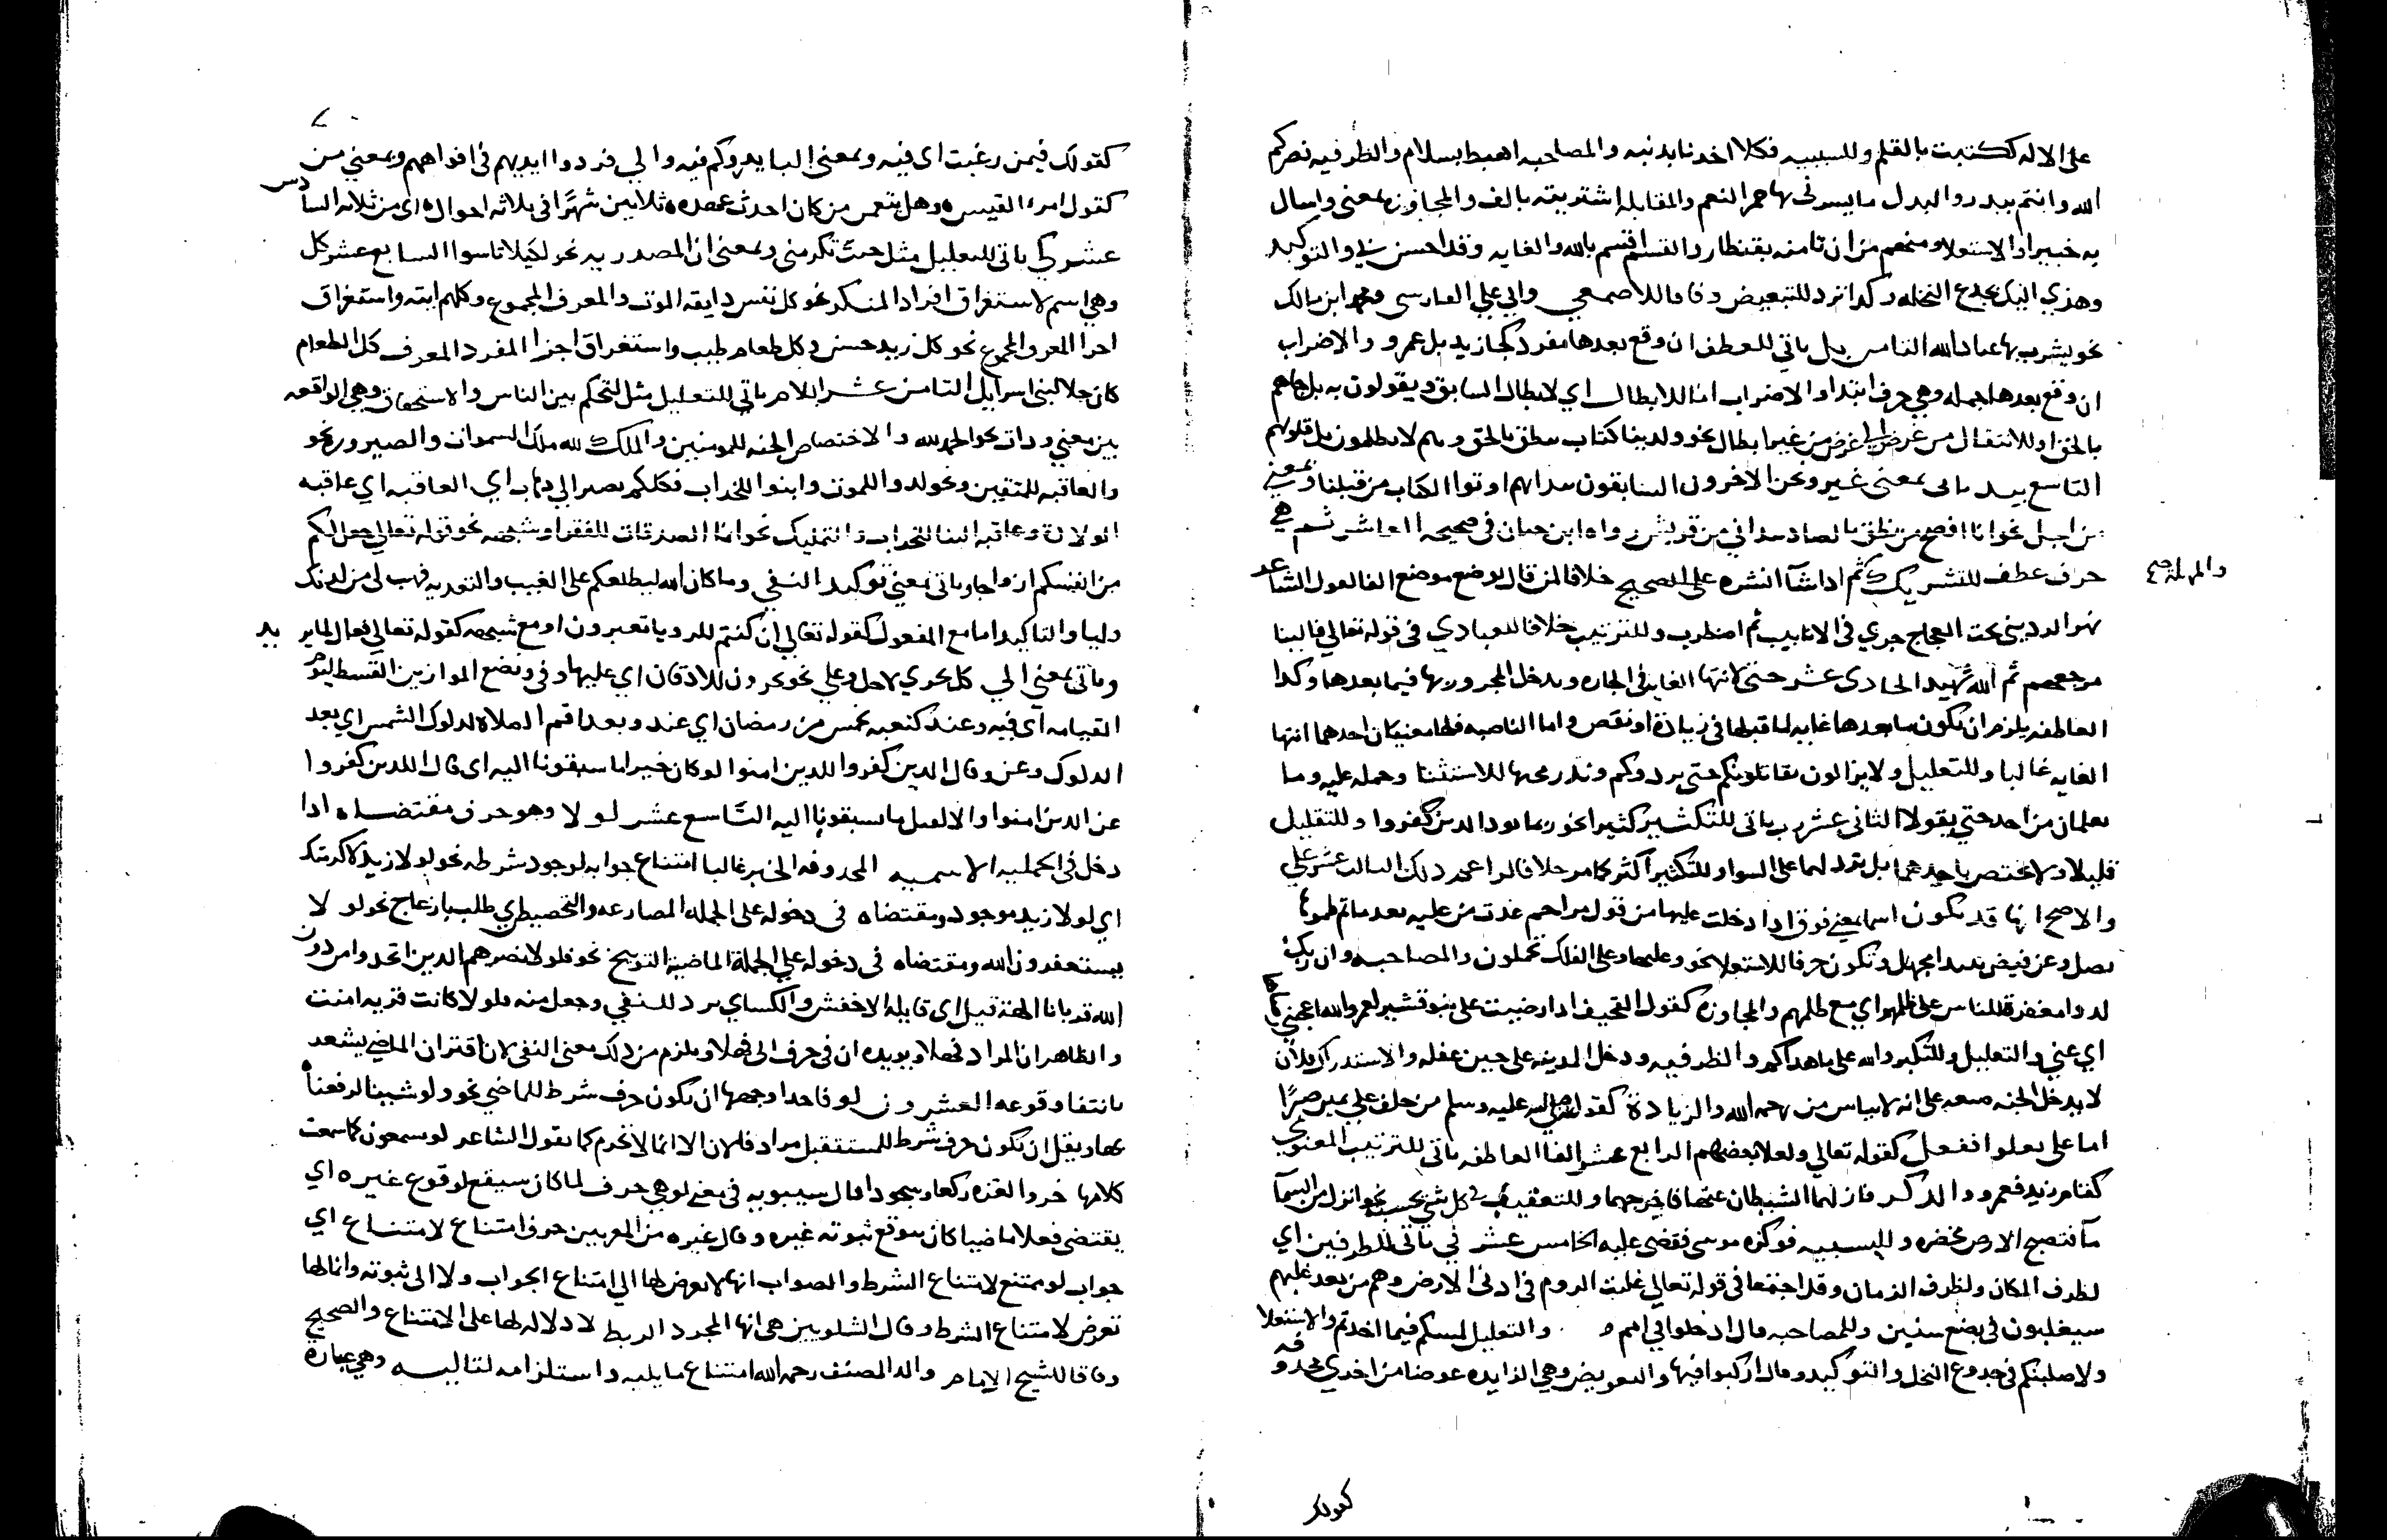 على الاله ككتبت بالقلم وللسببيه فكلا اخدنا بدنبه والمصاحبه اهبط بسلام والظرفيه نصركم
الله وانتم ببدر والبدل ما يسرني بها حمر النعم والمقابله اشتريته بالف والمجاوزه بمعنى واسال
به خبيرا والاستعلا ومنهم من ان تامنه بقنطار والقسم اقسم بالله والغايه وقد احسن بي والتوكيد
وهزي اليك بجدع النخله وكدا ترد للتبعيض وفاقا للاصمعي وابي علي الفارسي وابن مالك
نحو يشرب بها عباد الله الثامن بل ياتي للعطف ان وقع بعدها مفرد كجا زيد بل عمرو والاضراب
ان وقع بعدها جمله وهي حرف ابتدا والاضراب اما للابطال اي لابطال السابق ويقولون به بل جاهم
بالحق او للانتقال من غرض الى غرض من غير ابطال نحو ولدينا كتاب ينطق بالحق وهم لا يظلمون بل قلوبهم
التاسع بيد ياتي بمعنى غير ونحن الاخرون السابقون بيد انهم اوتوا الكتاب من قبلنا وبمعني
من اجل نحو انا افصح من نطق بالصاد بيد اني من قريش رواه ابن حبان في صحيحه العاشر ثم هي
حرف عطف للتشريك ثم ادا شآ انشره على الصحيح خلافا لمن قال يوضع موضع الفا لقول الشاعر
والمهلة صح
كهز الرديني تحت العجاج جري في الانابيب ثم اضطرب وللترتيب خلافا للعبادي في قوله تعالى فالينا
مرجعهم ثم الله شهيد الحادي عشر حتى لانتها الغايه في الجاره ويدخل المجرور بها فيما بعدها وكدا
العاطفه يلزم ان يكون ما بعدها غايه لما قبلها في زيادة او نقص واما الناصبه فلها معنيان احدهما انتها
الغايه غالبا وللتعليل ولا يزالون يقاتلونكم حتى يردوكم وندر مجيها للاستثنا وحمله عليه وما
يعلمان من احد حتي يقولا الثاني عشر رب ياتي للتكثير كثيرا نحو ربما يود الدين كفروا وللتقليل
قليلا ولا يختص باحدهما بل ترد لهما على السوا وللتكثير اكثر كما مر خلافا لزاعم دلك الثالث عشر علي
والاصح انها قد تكون اسما بمعني فوق ادا دخلت عليها من قول مزاحم غدت من عليه بعد ما تم ظموها
تصل وعن قيض ببيدا مجهل وتكون حرفا للاستعلا نحو وعليها وعلى الفلك تحملون والمصاحبه وان ربك
لدوا مغفرة للناس على ظلمهم اي مع ظلمهم والمجاوزه كقول القحيف ادا رضيت على بنو قشير لعمرو الله اعجبني رضاها
اي عني والتعليل ولتكبروا الله على ما هداكم والظرفيه ودخل المدينه على حين غفله والاستدراك فلان
لا يدخل الجنه على انه لا يياس من رحمه الله والزيادة كقوله صلى الله عليه وسلم من حلف على يمين صبرا
اما على يعلوا ففعل كقوله تعالي ولعلا بعضهم الرابع عشر الفا العاطفه ياتي للترتيب المعنوي
كقام زيد فعمرو والدكر فازلهما الشيطان عنها فاخرجهما وللتعقيب في كل شي بحسبه نحو انزل من السمآ
مآ فتصبح الارض مخضره وللسببيه فوكزه موسى فقضى عليه الخامس عشر في ياتي للظرفين اي
لظرف المكان ولظرف الزمان وقد اجتمعا في قوله تعالى غلبت الروم في ادنى الارض وهم من بعد غلبهم
سيغلبون في بضع سنين وللمصاحبه قال ادخلوا في امم والتعليل لمسكم فيما اخدتم والاستعلا
ولاصلبنكم في جدوع النخل والتوكيد وقال اركبوا فيها والتعويض وهي الزايده عوضا من اخري محدوفه
كقولك
كقولك فيمن رغبت اي فيه وبمعني البا يدروكم فيه والي فردوا ايديهم في افواههم وبمعني من
كقول امرء القيس وهل يعمن من كان احدث عهده ثلاثين شهرا في ثلاثه احوال اي من ثلاثه السادس
عشر كي ياتي للتعليل مثل جيت كي تكرمني وبمعني ان المصدريه نحو لكيلا تاسوا السابع عشر كل
وهي اسم لاستغراق افراد المنكر نحو كل نفس دايقه الموت والمعرف المجموع وكلهم اتيه واستغراق
اجزا المعرف المجموع نحو كل زيد حسن وكل طعام طيب واستغراق اجزا المفرد المعرف كل الطعام
كان حلا لبني اسرايل الثامن عشر اللام ياتي للتعليل مثل لتحكم بين الناس والاستحقاق وهي الواقعه
بين معني ودات نحو الحمد لله والاختصاص الجنه للمومنين والملك لله ملك السموات والصيروره نحو
والعاقبه للمتقين ونحو لدوا للموت وابنوا للخراب فكلكم يصير الي دهاب اي العاقبه اي عاقبه
الولادة وعاقبه البنا للخراب والتمليك نحو انما الصدقات للفقرا وشبهه نحو قوله تعالي جعل لكم
من انفسكم ازواجا وياتي بمعني توكيد النفي وما كان الله ليطلعكم على الغيب والتعديه فهب لي من لدنك
وليا والتاكيد اما مع المفعول كقوله تعالي ان كنتم للرويا تعبرون او مع شبهه كقوله تعالي فعال لما يريد
وياتي بمعني الي كل يجري لاجل وعلي نحو يخرون للادقان اي عليها وفي ونضع الموازين القسط ليوم
القيامه اي فيه وعند كتبه لخمس من رمضان اي عند وبعد اقم الصلاه لدلوك الشمس اي بعد
الدلوك وعن وقال الدين كفروا للدين امنوا لو كان خيرا ما سبقونا اليه اي قال الدين كفروا
عن الدين امنوا والا لقيل ما سبقونا اليه التاسع عشر لولا وهو حرف مقتضاه ادا
دخل في الجمليه الاسميه المحدوفه الخبر غالبا امتناع جوابه لوجود شرطه نحو لولا زيد لاكرمتك
اي لولا زيد موجود ومقتضاه في دخوله على الجمله المضارعه والتحضيض اي طلب بازعاج نحو لولا
يستغفرون الله ومقتضاه في دخوله علي الجملة الماضية التوبيخ نحو فلولا نصرهم الدين اتخدوا من دون
الله قربانا الهة قيل اي قايله الاخفش والكساي يرد للنفي وجعل منه فلولا كانت قريه امنت
والظاهر ان المراد فهلا ويويده ان في حرف ابي فهلا ويلزم من دلك معنى النفي لان اقتران الماضي يشعر
بانتفا وقوعه العشرون لو فاحد اوجهها ان يكون حرف شرط للماضي نحو ولو شينا لرفعناه
بها ويقل ان يكون حرف شرط للمستقبل مراد فا لان الا انها لا تجزم كما يقول الشاعر لو يسمعون كما سمعت
كلامها خروا لعزه ركعا وسجودا قال سيبويه في معني لو هي حرف لما كان سيقع لوقوع غيره اي
يقتضي فعلا ماضيا كان يتوقع ثبوته لثبوت غيره وقال غيره من المعربين حرف امتناع لامتناع اي
جواب لو ممتنع لامتناع الشرط والصواب انها لا تعرض لها الي امتناع الجواب ولا الى ثبوته وانما لها
تعرض لامتناع الشرط وقال الشلوبين هي انها لمجرد الربط لا دلاله لها على الامتناع والصحيح
وفاقا للشيخ الامام والد المصنف رحمه الله امتناع ما يليه واستلزامه لتاليه وهي عبارة